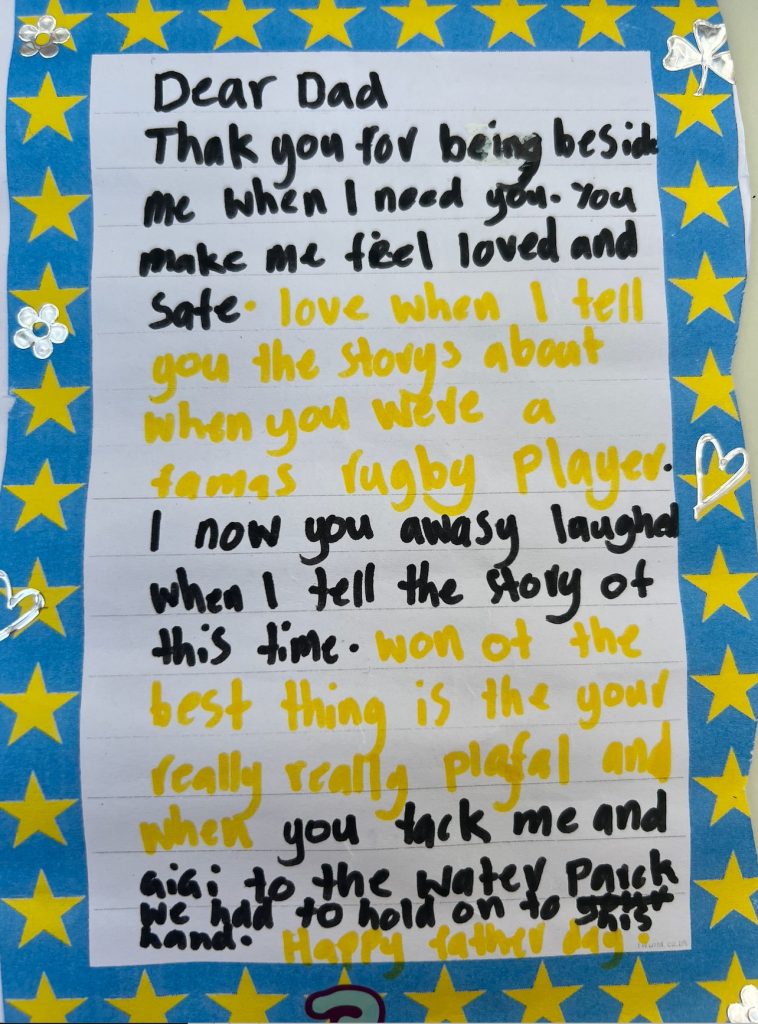 Dear Dad
Thak you for being beside
me when I need you. You
make me feel loved and
safe. love when I tell
you the storys about
when you were a
famas rugby Player.
I now you awasy laughed
when I tell the story of
this time. won of the
best thing is the your
really really plafal and
when you tack me and
GiGi to the water Parck
we had to hold on to his
hand.
Happy father day.